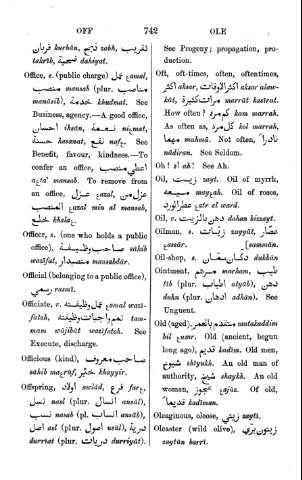 OFF 742 OLE
تقريب kurbân, ذبح zabh, قربان
takrîb, ضحية dahiyat.
Office, s. (public charge) عمل ƹamal,
منصب mansab (plur. مناصب
manâsib), خدمة khudmat. See
Business, agency.—A good office,
احسان ihsân, نعمة niƹmat,
حسنة hasanat, نفع nafƹ. See
Benefit, favour, kindness.—To
confer an office, اعطى منصب
aƹta' mansab. To remove from
an office, عزل ƹazal, عزل من
المنصب ƹazal min al mansab,
خلع khalaƹ.
Officer, s. (one who holds a public
office), صاحب وظيفة sâhib
wazîfat, منصبدار mansabdâr.
Official (belonging to a public office),
رسمي rasmî.
Officiate, v. عمل وظيفته ƹamal wazî-
fatoh, تمم واجبات وظيفته tam-
mam wâjibât wazîfatoh. See
Execute, discharge.
Officious (kind), صاحب معروف
sâhib maƹrûf, خير khayyir.
Offspring, اولاد awlâd, فرع farƹ,
نسل nasl (plur. انسال ansâl),
نسب nasab (pl. انساب ansâb),
اصل asl (plur. اصول usûl), ذرية
durriat (plur. دريات durriyât).
See Progeny; propagation, pro-
duction.
Oft, oft-times, often, oftentimes,
اكثر aksar, اكثر الاوقات aksar alaw-
kât, مرات كثيرة marrât kasîrat.
How often? كم مرة kam marrah.
As often as, كل مرة kol marrah,
مهما mahmâ. Not often, نادرا
nâdiran. See Seldom.
Oh! اه ah! See Ah.
Oil, زيت zayt. Oil of myrrh,
ميعة mayƹah. Oil of roses,
عطر الورد ƹitr el ward.
Oil, v. دهن بالزيت dahan bizzayt.
Oilman, s. زيات zayyât, عصار
ƹassâr. [sammân.
Oil-shop, s. دكان سمان dukkân
Ointment, مرهم marham, طيب
tîb (plur. اطياب atyâb), دهن
duhn (plur. ادهان adhân). See
Unguent.
Old (aged), متقدم بالعمر mutakaddim
bil ƹumr. Old (ancient, begun
long ago), قديم kadîm. Old men,
شيوخ shiyûkh. An old man of
authority, شيخ shaykh. An old
woman, عجوز ƹajûz. Of old,
قديما kadîman.
Oleaginous, oleose, زيتي zaytî.
Oleaster (wild olive), زيتون بري
zaytûn barrî.